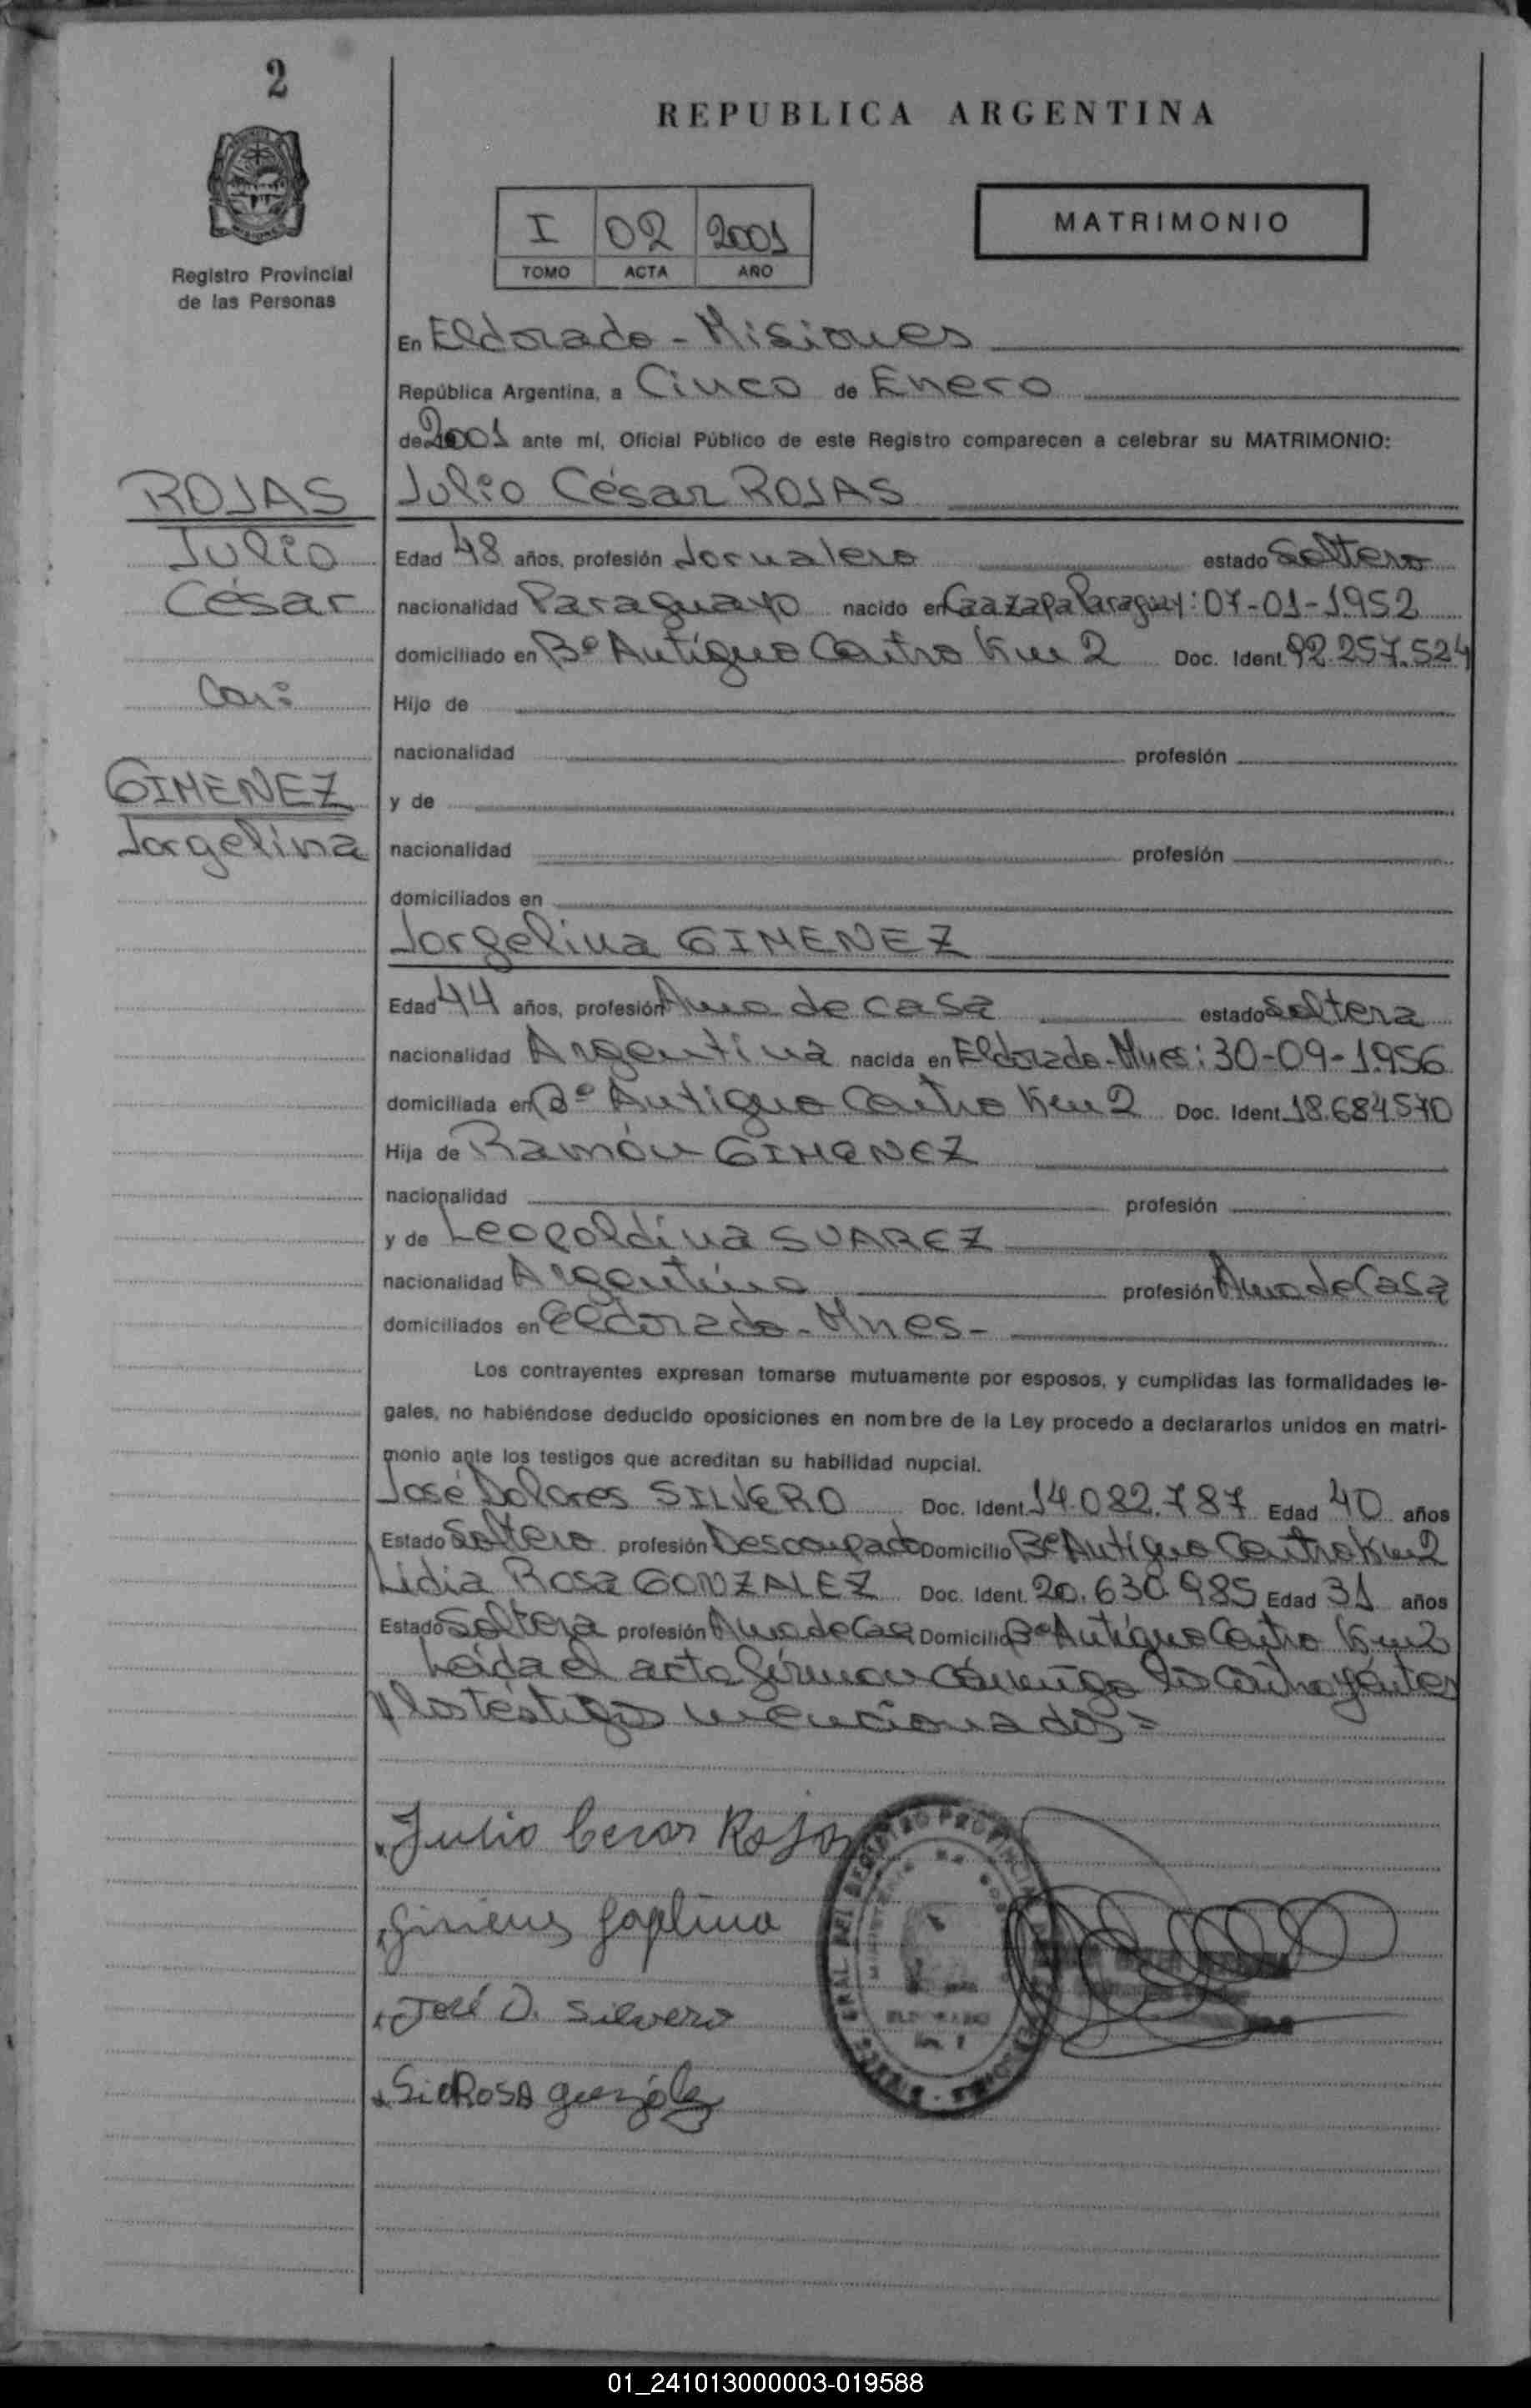 2
REPUBLICA ARGENTINA
I 02 2001
TOMO ACTA AÑO
MATRIMONIO
Registro Provincial
de las Personas
En Eldorado - Misiones
República Argentina, a Cinco de Enero
de 2001 ante mí, Oficial Público de este Registro comparecen a celebrar su MATRIMONIO:
ROJAS
Julio
César
Con:
GIMENEZ
Jorgelina
Julio César ROJAS
Edad 48 años, profesión Jornalero estado Soltero
nacionalidad Paraguayo nacido en Caazapa Paraguay: 07-01-1952
domiciliado en Bº Antiguo Contro Km 2 Doc. Ident. 92.257.524
Hijo de
nacionalidad profesión
y de
nacionalidad profesión
domiciliados en
Jorgelina GIMENEZ
Edad 44 años, profesión Ama de casa estado Soltera
nacionalidad Argentina nacida en Eldorado-Mnes: 30-09-1.956
domiciliada en Bº Antiguo Contro Km 2 Doc. Ident. 18.684.570
Hija de Ramón GIMENEZ
nacionalidad profesión
y de Leopoldina SUAREZ
nacionalidad Argentina profesión Ama de Casa
domiciliados en Eldorado - Mnes -
Los contrayentes expresan tomarse mutuamente por esposos, y cumplidas las formalidades le-
gales, no habiéndose deducido oposiciones en nombre de la Ley procedo a declararlos unidos en matri-
monio ante los testigos que acreditan su habilidad nupcial.
José Dolores SILVERO Doc. Ident. 14.082.787 Edad 40 años
Estado Soltero profesión Desocupado Domicilio Bº Antiguo Contro Km 2
Lidia Rosa GONZALEZ Doc. Ident. 20.630.985 Edad 31 años
Estado Soltera profesión Ama de Casa Domicilio Bº Antiguo Contro Km 2
Leída el acta firman conmigo los contrayentes
y los testigos mencionados =
Julio Cesar Rojas
Gimenes
José D. Silvero
ROSA
01_241013000003-019588